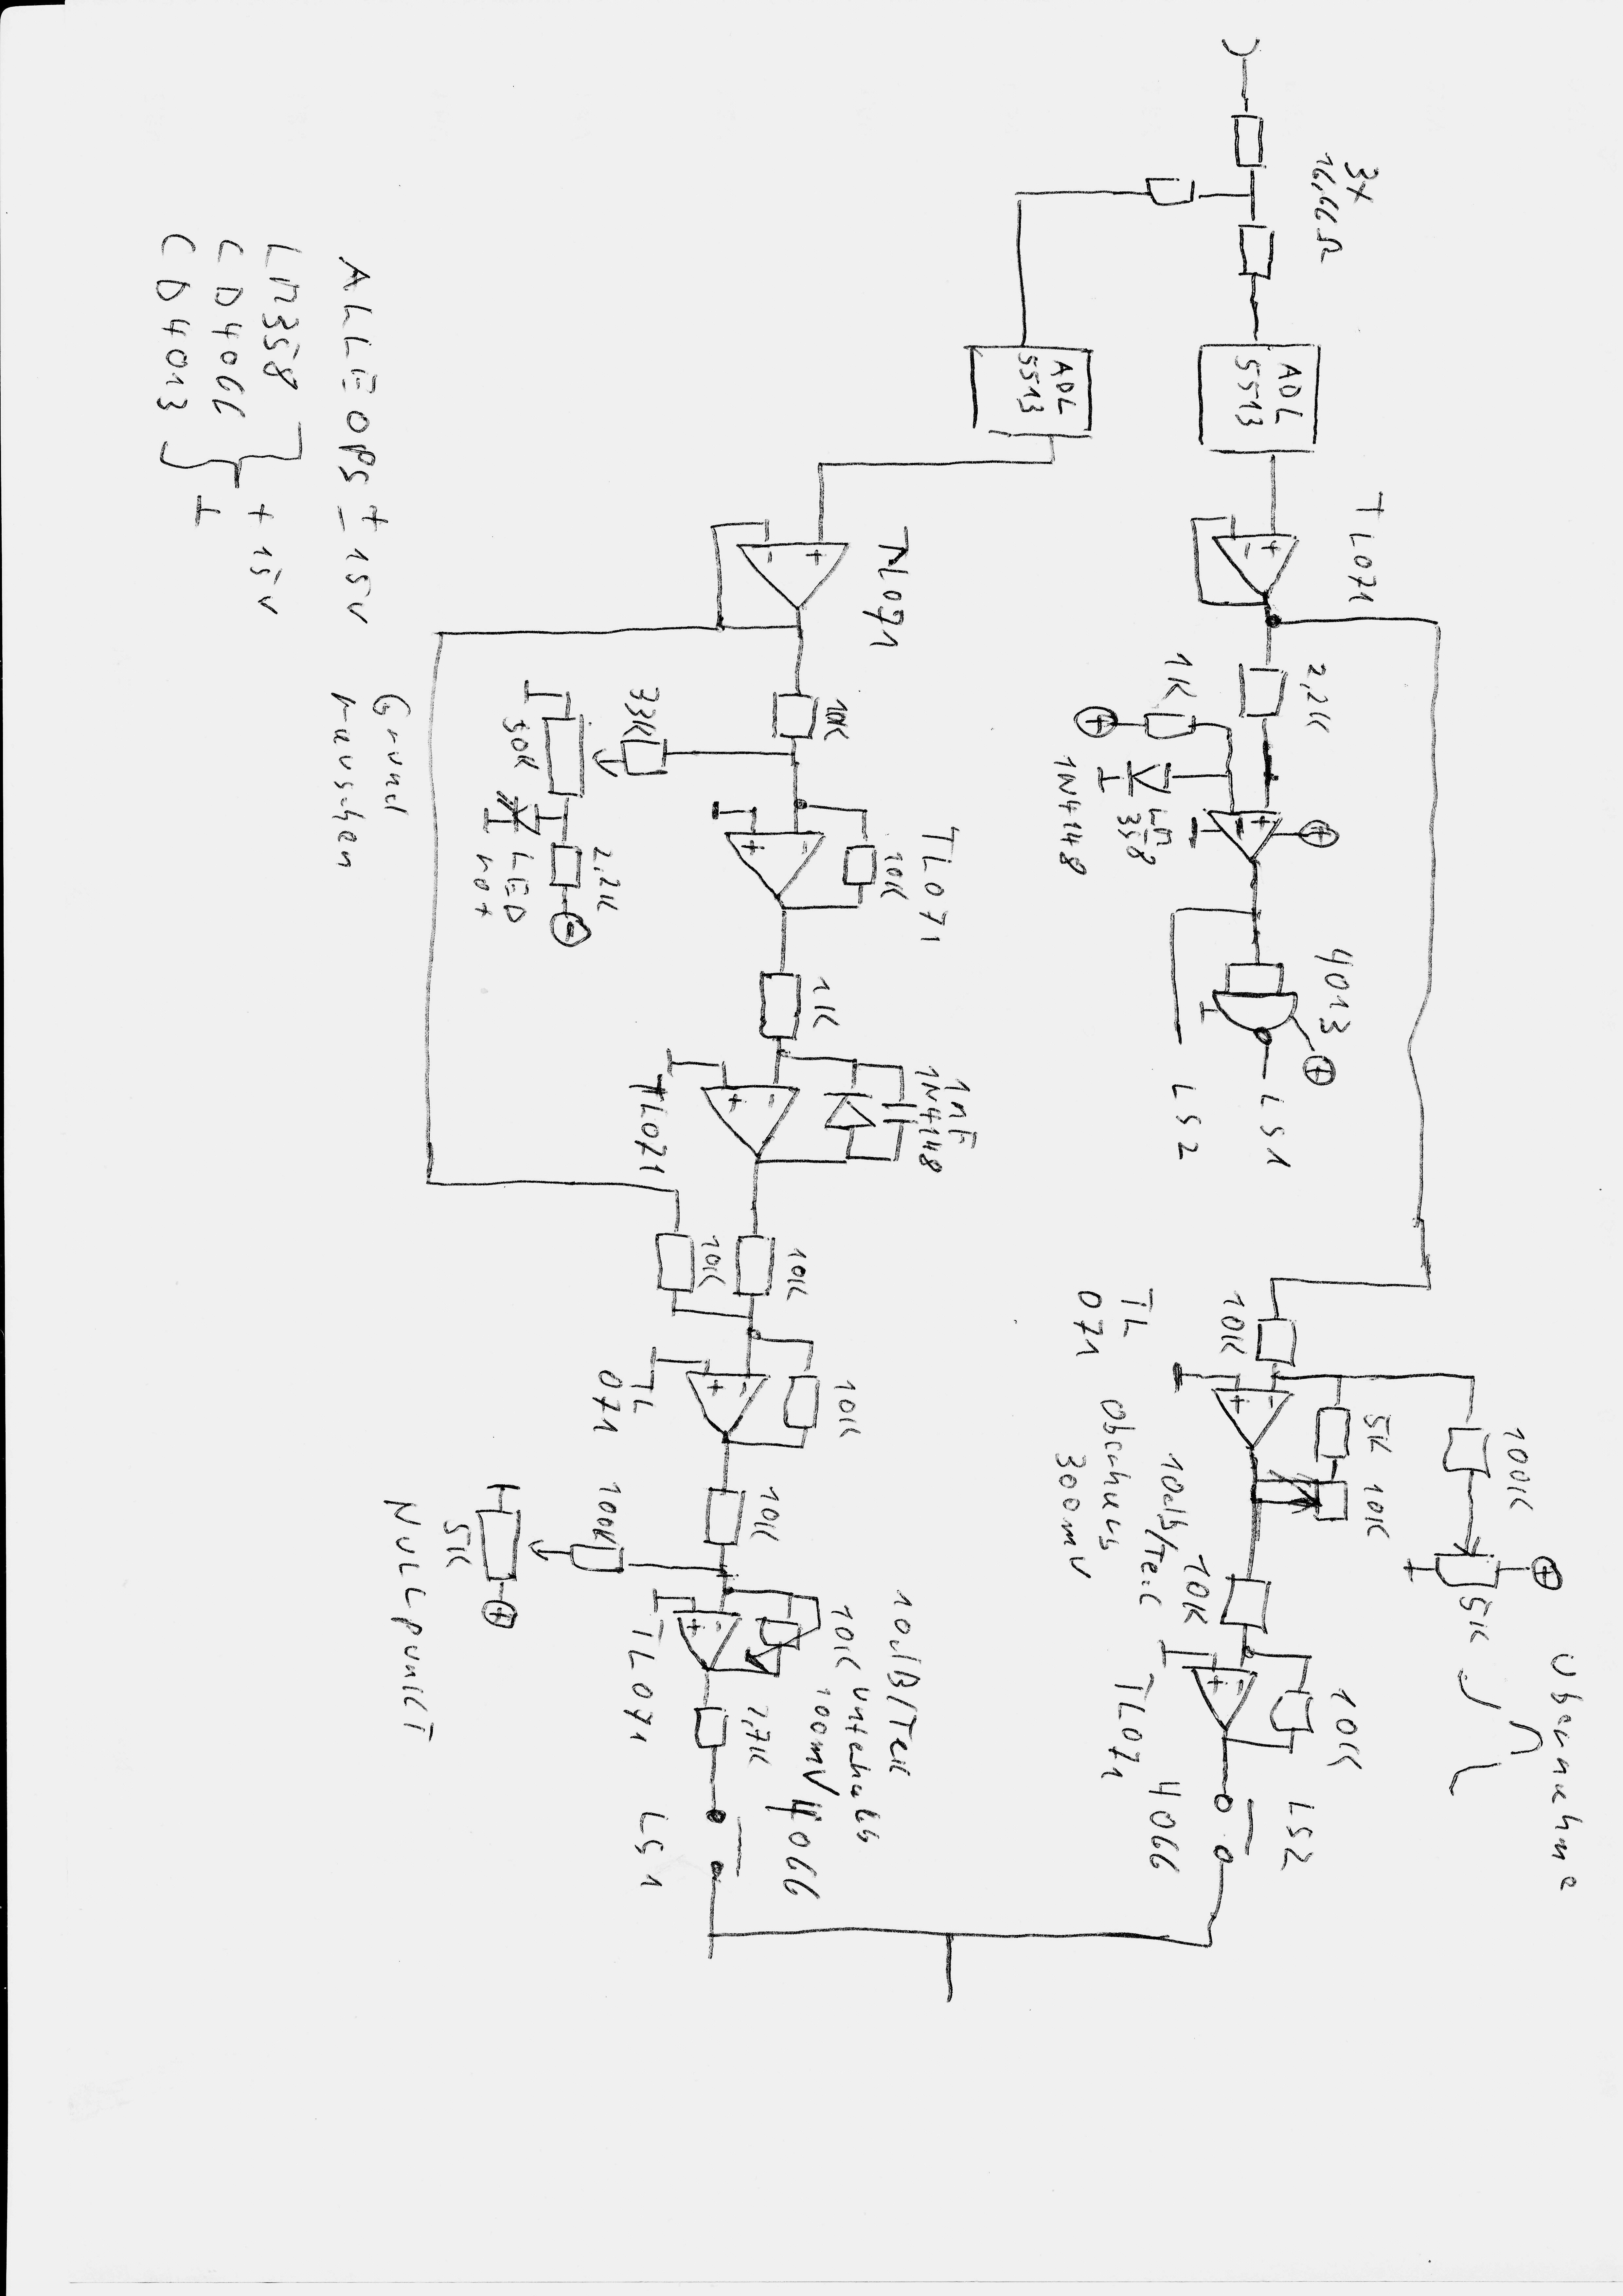 3x
16,66Ω
ADL
5513
TL071
2,2K
1K
1N4148
LM
358
4013
LS1
LS2
10K
TL
071
5K
10K
100K
5K
Übernahme
10dB/Teil
Oberhalb
300mV
10K
10K
TL071
4066
LS2
ADL
5513
TL071
10K
33K
50K
2,2K
LED
rot
Grund
rauschen
TL071
10K
1K
1nF
1N4148
TL071
10K
10K
10K
TL
071
10K
100K
5K
NULLPUNKT
10dB/Teil
10K unterhalb
300mV
TL071
2,7K
4066
LS1
ALLE OPs ± 15V
LM358
CD4066
CD4013
+ 15V
⊥